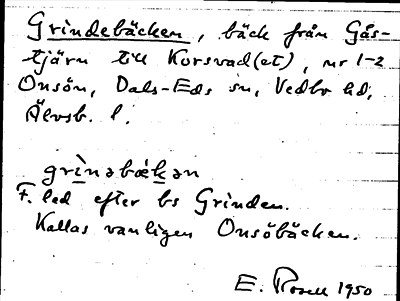 Grindebäcken, bäck från Gås-
tjärn till Korsvad(et), nr 1-2
Onsön, Dals-Eds sn, Vedbo hd,
Älvsb. l.
grìnəbæ̀kən
F. led efter bs Grinden.
Kallas vanligen Onsöbäcken.
E. Rosell 1950